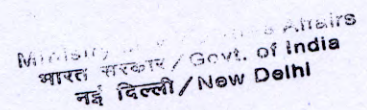 Ministry Affairs
भारत सरकार / Govt. of India
नई दिल्ली / New Delhi